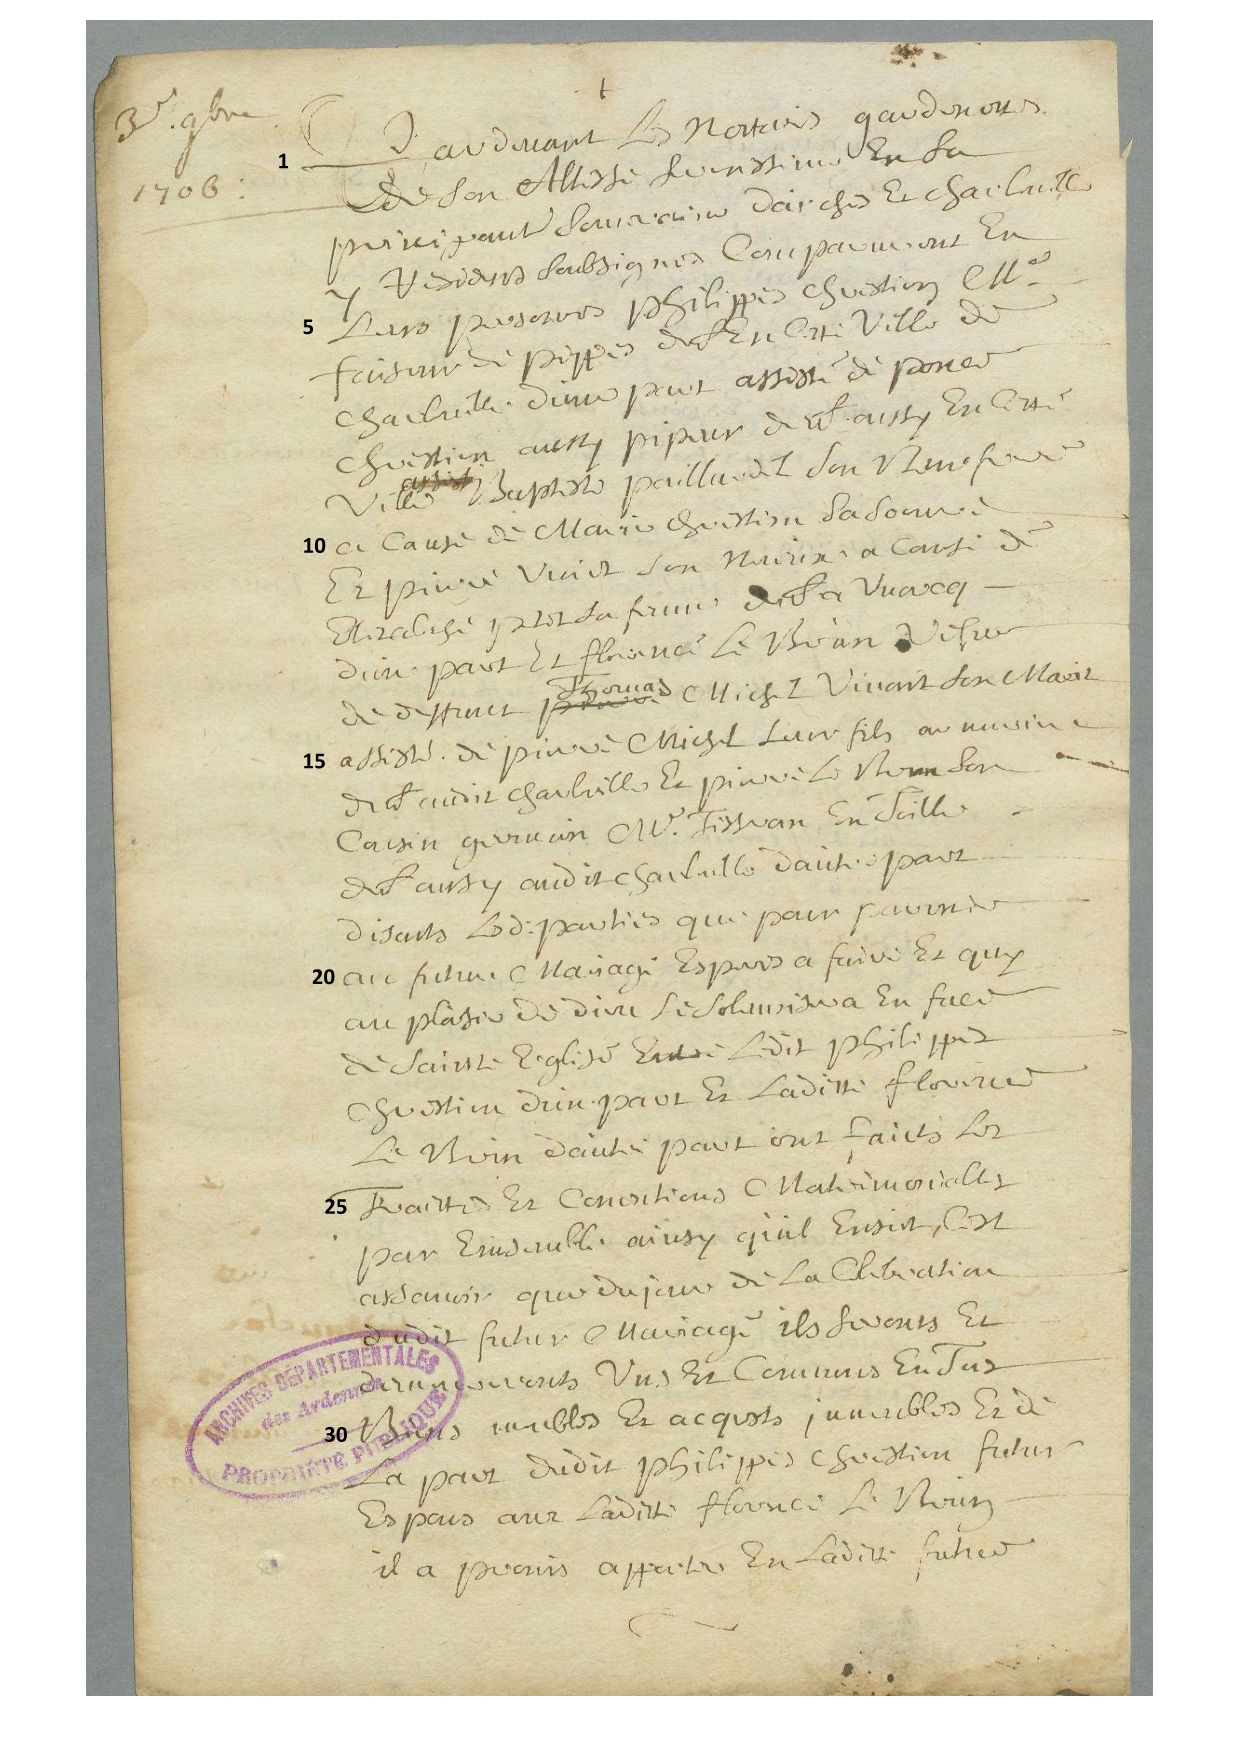 3e. 9bre
1706:
1 Pardevant Les Nottaires gardenottes
de Son Altesse Serenissime En Sa
principauté Souveraine darches Et charleville
y Residens Soubsignés Comparurent En
5 Leurs personnes philippes chrestien Me.
faiseur de pippes dt En Cette Ville de
charleville d'une part assisté de poncé
chrestien aussy pipeur dt aussy En Cette
Ville assisté J Baptiste paillardel Son Beau frere
10 a Cause de Marie chrestien Sa Soeur
Et pierre Son a Cause de
Elizabeth Sa femme dt a
d'une part Et florence Le Brun Vefve
de deffunct Thomas Michel Vivant Son Marit
15 assisté de pierre Michel Leur fils
dt audit charleville Et pierre Le Brun Son
Cousin germain Me. Tisseran En Toille
dt aussy audit charleville d'autre part
disants Lesd: parties que pour parvenir
20 au futur Mariage Esperé a faire Et quy
au plaisir de dieu Se Solemnisera En face
de Sainte Eglise Entre Ledit philippes
chrestien d'une part Et Laditte florence
Le Brun d'autre part ont faicts Les
25 Traittés Et Conventions Matrimonialles
par Ensemble ainsy qu'il Ensuit, C'est
assavoir que du jour de La Celebration
dudit futur Mariage ils Seronts Et
demeureronts Uns Et Communs En Tous
30 Biens meubles Et acquests jmmeubles Et de
La part dudit philippes chrestien futur
Espous avec Laditte florence Le Brun
il a promis apporter En Laditte future
ARCHIVES DÉPARTEMENTALES
des Ardennes
PROPRIÉTÉ PUBLIQUE